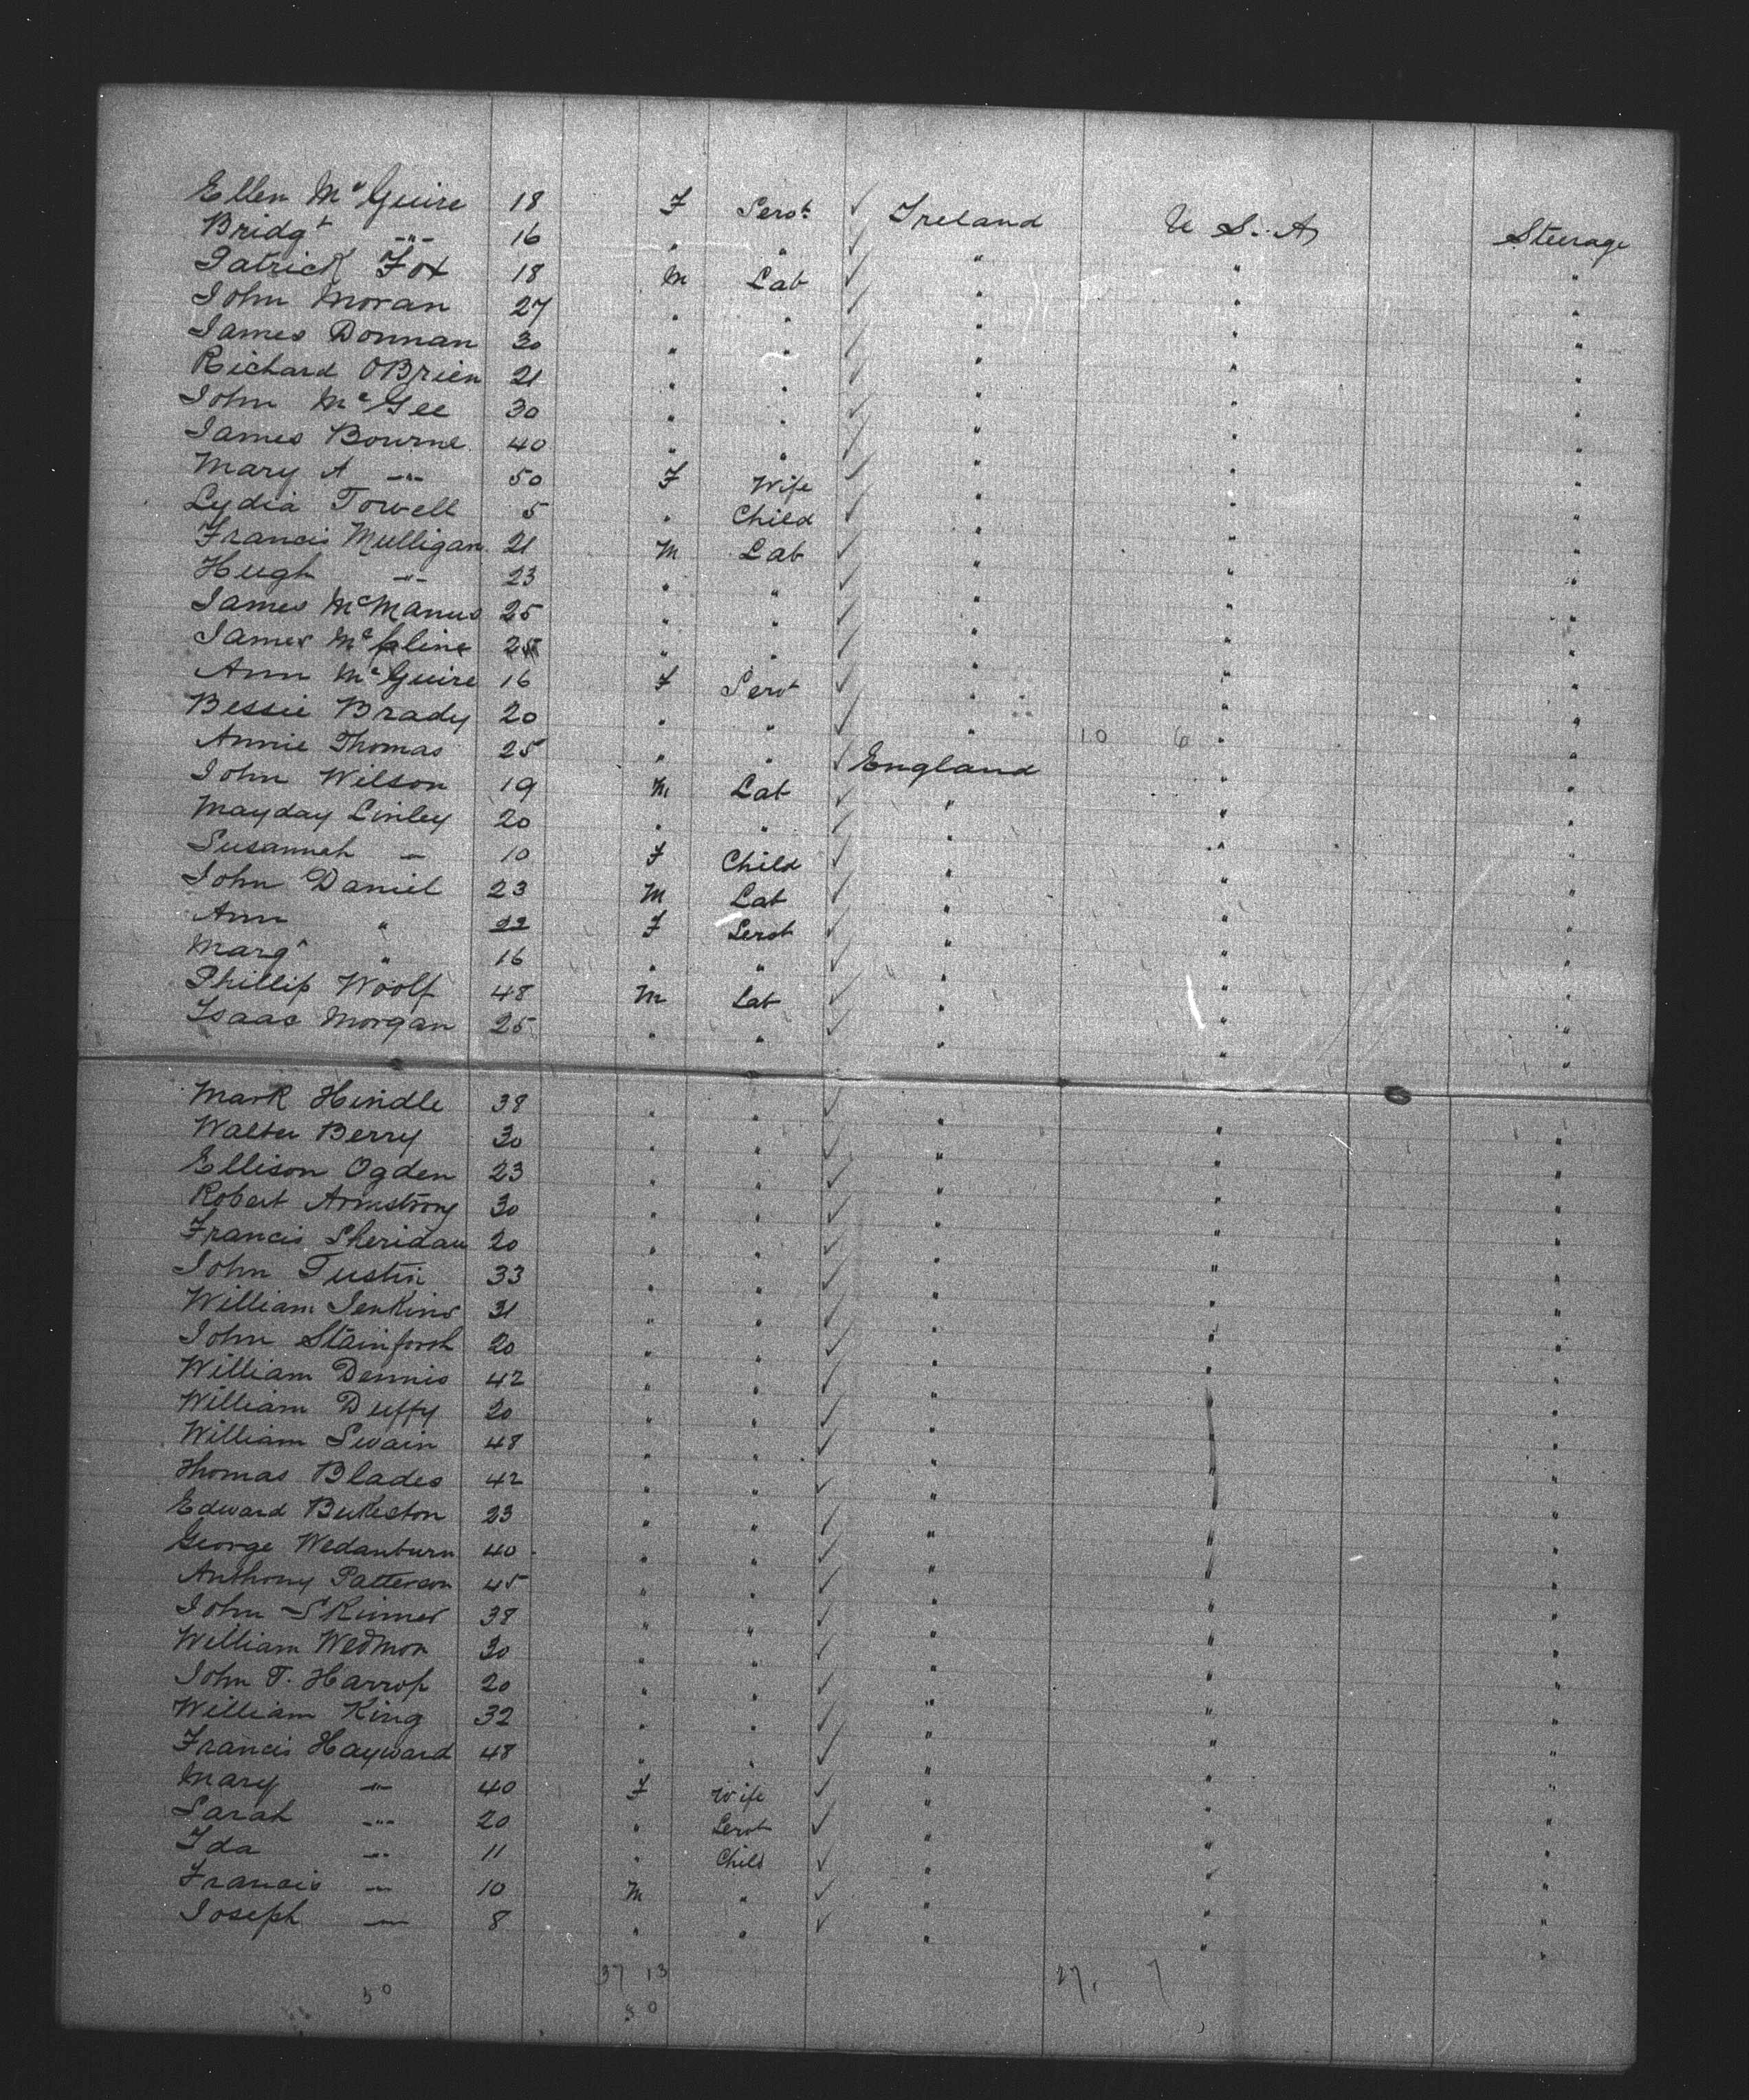 Ellen McGuire 18 F Servt ✓ Ireland U S. A Steerage
Bridgt -"- 16 " " ✓ " " "
Patrick Fox 18 M Lab ✓ " " "
John Moran 27 " " ✓ " " "
James Donnan 30 " " ✓ " " "
Richard OBrien 21 " " ✓ " " "
John McGee 30 " " ✓ " " "
James Bourne 40 " " ✓ " " "
Mary A -"- 50 F Wife ✓ " " "
Lydia Towell 5 " Child ✓ " " "
Francis Mulligan 21 M Lab ✓ " " "
Hugh -"- 23 " " ✓ " " "
James McManus 25 " " ✓ " " "
James " " ✓ " " "
Ann McGuire 16 F Servt ✓ " " "
Bessie Brady 20 " " ✓ " 10 6 " "
Annie Thomas 25 " " ✓ England " "
John Wilson 19 M Lab ✓ " " "
Mayday Linley 20 " " ✓ " " "
Susannah - 10 F Child ✓ " " "
John Daniel 23 M Lab ✓ " " "
Ann " 22 F Servt ✓ " " "
Margt " 16 " " ✓ " " "
Phillip Woolf 48 M Lab ✓ " " "
Isaac Morgan 25 " " ✓ " " "
Mark Hindle 38 " " ✓ " " "
Walter Berry 30 " " ✓ " " "
Ellison Ogden 23 " " ✓ " " "
Robert Armstrong 30 " " ✓ " " "
Francis Sheridan 20 " " ✓ " " "
John Tustin 33 " " ✓ " " "
William Jenkins 31 " " ✓ " " "
John Stainforth 20 " " ✓ " " "
William Dennis 42 " " ✓ " " "
William Duffy 20 " " ✓ " " "
William Swain 48 " " ✓ " " "
Thomas Blades 42 " " ✓ " " "
Edward 23 " " ✓ " " "
George Wedanburn 40 " " ✓ " " "
Anthony Patterson 45 " " ✓ " " "
John Skinner 38 " " ✓ " " "
William Wedmon 30 " " ✓ " " "
John T. Harrop 20 " " ✓ " " "
William King 32 " " ✓ " " "
Francis Hayward 48 " " ✓ " " "
Mary -"- 40 F Wife ✓ " " "
Sarah -"- 20 " Servt ✓ " " "
Ida -"- 11 " Child ✓ " " "
Francis -"- 10 M " ✓ " " "
Joseph -"- 8 " " ✓ " " "
37 13 27. 7
50 50